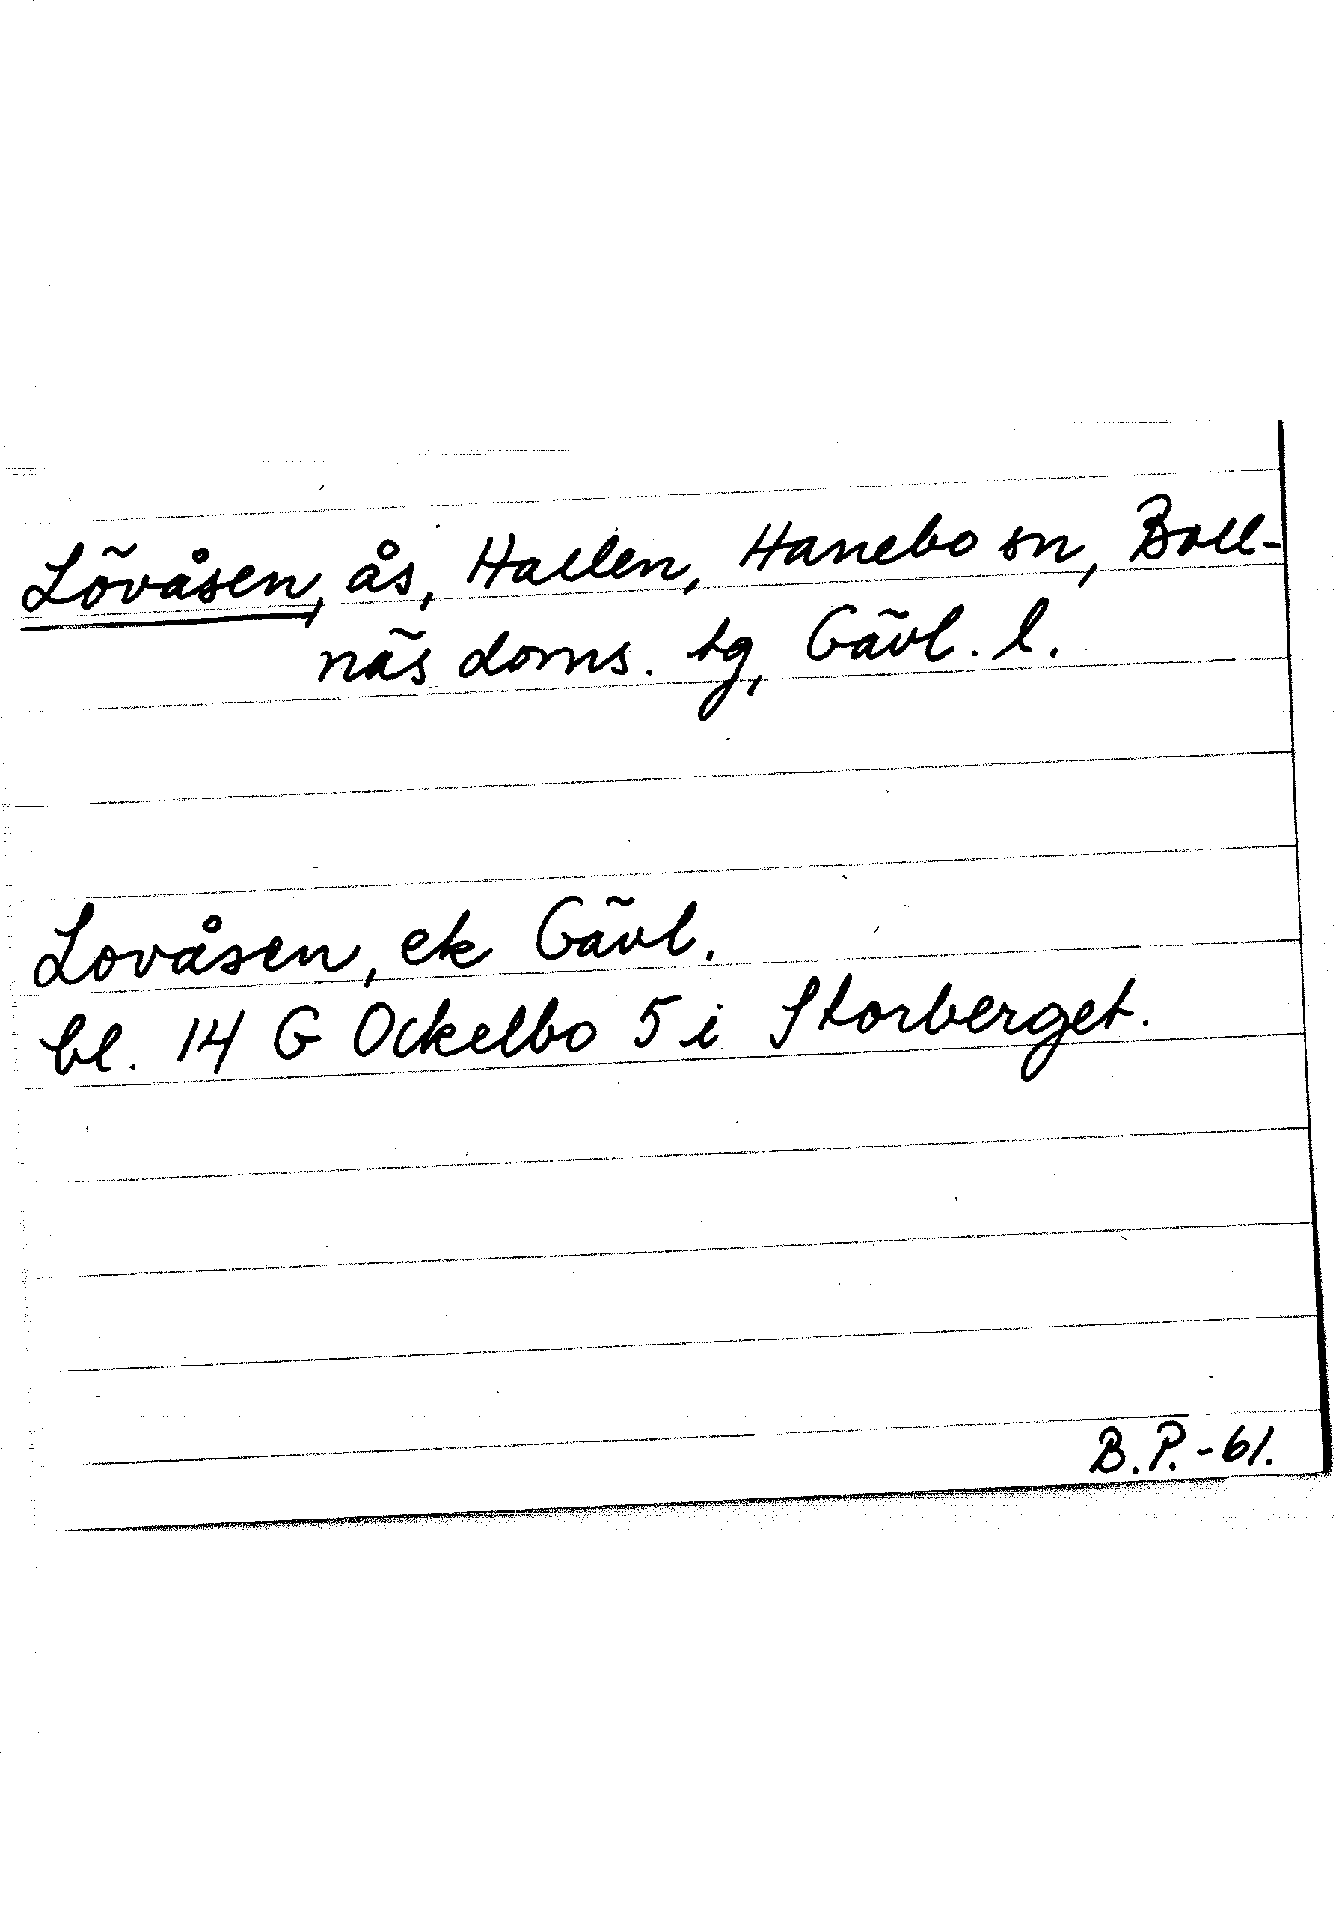 Lövåsen, ås, Hallen, Hanebo sn, Boll-
näs doms. tg, Gävl. l.
Lovåsen, ek Gävl.
bl. 14 G Ockelbo 5 i Storberget.
B.P.-61.